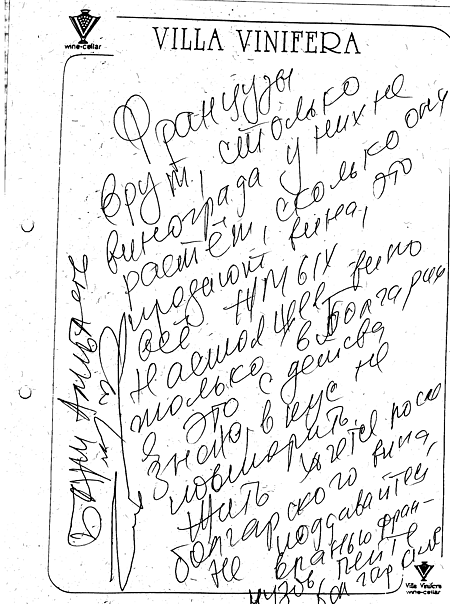 wine-cellar
VILLA VINIFERA
Французы
врут, столько
винограда у них не
растёт, сколько они
продают вина, это
всё
Настоящее вино
только в Болгарии
Я это с детства
знаю, вкус не
повторить.
Жить хочется росло
болгарского вина,
не поддавайтесь
вранью фран-
цузов, пейте
болгарския
Бари
Villa Vinifera
wine-cellar